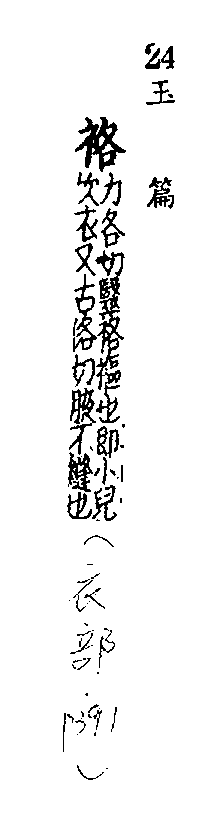 24
玉篇
袼
力各切繄袼樞也即小兒
次衣又古洛切腋不縫也
(衣部·P391)